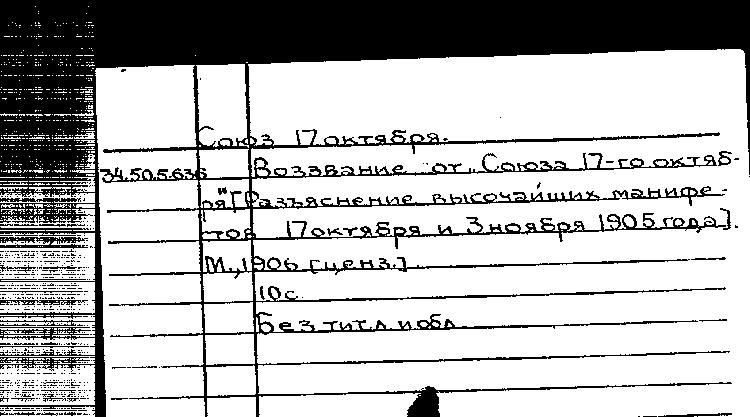 Союз 17 октября.
34.50.5.636 Воззвание от „Союза 17-го октяб-
ря" [Разъяснение высочайших манифе-
стов 17 октября и 3 ноября 1905 года].
М., 1906 [ценз.]
10 с
Без тит. л и обл